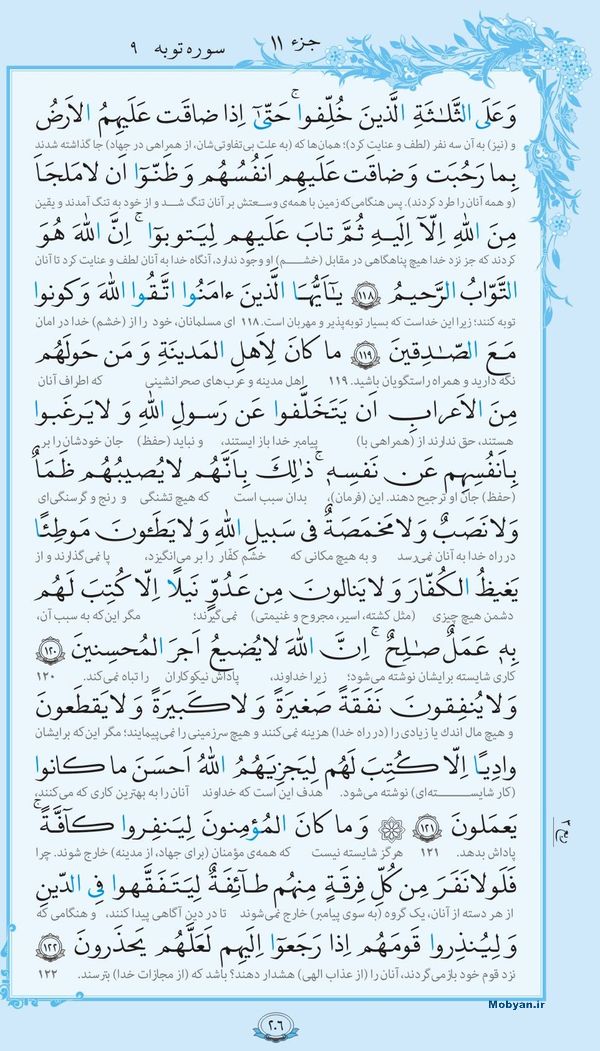 جزء ۱۱
سوره توبه ۹
وَ عَلَى الثَّلـٰثَةِ الَّذينَ خُلِّفوا ۚ حَتّىٰٓ اِذا ضاقَت عَلَيهِمُ الاَرضُ
و (نیز) به آن سه نفر (لطف و عنایت کرد)؛ همان‌ها که (به علت بی‌تفاوتی‌شان، از همراهی در جهاد) جا گذاشته شدند
بِما رَحُبَت وَ ضاقَت عَلَيهِم اَنفُسُهُم وَ ظَنّوٓا اَن لا مَلجَاَ
(و همه آنان را طرد کردند). پس هنگامی‌که زمین با همه‌ی وسعتش بر آنان تنگ شد و از خود به تنگ آمدند و یقین
مِنَ اللهِ اِلّآ اِلَيهِ ثُمَّ تابَ عَلَيهِم لِيَتوبوٓا ۚ اِنَّ اللهَ هُوَ
کردند که جز نزد خدا هیچ پناهگاهی در مقابل (خشم) او وجود ندارد، آنگاه خدا به آنان لطف و عنایت کرد تا آنان
التَّوّابُ الرَّحيمُ ﴿۱۱۸﴾ يـٰٓاَيُّهَا الَّذينَ ءامَنُوا اتَّقُوا اللهَ وَ كونوا
توبه کنند؛ زیرا این خداست که بسیار توبه‌پذیر و مهربان است. ۱۱۸ ای مسلمانان، خود را از (خشم) خدا در امان
مَعَ الصّـٰدِقينَ ﴿۱۱۹﴾ ما كانَ لِاَهلِ المَدينَةِ وَ مَن حَولَهُم
نگه دارید و همراه راستگویان باشید. ۱۱۹ اهل مدینه و عرب‌های صحرانشینی که اطراف آنان
مِنَ الاَعرابِ اَن يَتَخَلَّفوا عَن رَسولِ اللهِ وَ لا يَرغَبوا
هستند، حق ندارند از (همراهی با) پیامبر خدا باز ایستند، و نباید (حفظ) جان خودشان را بر
بِاَنفُسِهِم عَن نَفسِهٖ ۚ ذٰلِكَ بِاَنَّهُم لا يُصيبُهُم ظَمَأٌ
(حفظ) جان او ترجیح دهند. این (فرمان)، بدان سبب است که هیچ تشنگی و رنج و گرسنگی‌ای
وَ لا نَصَبٌ وَ لا مَخمَصَةٌ فی سَبيلِ اللهِ وَ لا يَطَـٔونَ مَوطِئًا
در راه خدا به آنان نمی‌رسد و به هیچ مکانی که خشم کفّار را بر می‌انگیزد، پا نمی‌گذارند و از
يَغيظُ الكُفّارَ وَ لا يَنالونَ مِن عَدُوٍّ نَيلًا اِلّا كُتِبَ لَهُم
دشمن هیچ چیزی (مثل کشته، اسیر، مجروح و غنیمتی) نمی‌گیرند؛ مگر این‌که به سبب آن،
بِهٖ عَمَلٌ صـٰلِحٌ ۚ اِنَّ اللهَ لا يُضيعُ اَجرَ المُحسِنينَ ﴿۱۲۰﴾
کاری شایسته برایشان نوشته می‌شود؛ زیرا خداوند، پاداش نیکوکاران را تباه نمی‌کند. ۱۲۰
وَ لا يُنفِقونَ نَفَقَةً صَغيرَةً وَ لا كَبيرَةً وَ لا يَقطَعونَ
و هیچ مال اندك یا زیادی را (در راه خدا) هزینه نمی‌کنند و هیچ سرزمینی را نمی‌پیمایند؛ مگر این‌که برایشان
وادِيًا اِلّا كُتِبَ لَهُم لِيَجزِيَهُمُ اللهُ اَحسَنَ ما كانوا
(کار شایسته‌ای) نوشته می‌شود. هدف این است که خداوند آنان را به بهترین کاری که می‌کنند،
يَعمَلونَ ﴿۱۲۱﴾ وَ ما كانَ المُؤمِنونَ لِيَنفِروا كآفَّةً ۚ
پاداش بدهد. ۱۲۱ هرگز شایسته نیست که همه‌ی مؤمنان (برای جهاد، از مدینه) خارج شوند. چرا
فَلَولا نَفَرَ مِن كُلِّ فِرقَةٍ مِنهُم طآئِفَةٌ لِيَتَفَقَّهوا فِی الدّينِ
از هر دسته از آنان، یک گروه (به سوی پیامبر) خارج نمی‌شوند تا در دین آگاهی پیدا کنند، و هنگامی که
وَ لِيُنذِروا قَومَهُم اِذا رَجَعوٓا اِلَيهِم لَعَلَّهُم يَحذَرونَ ﴿۱۲۲﴾
نزد قوم خود باز می‌گردند، آنان را (از عذاب الهی) هشدار دهند؟ باشد که (از مجازات خدا) بترسند. ۱۲۲
۲۰۶
Mobyan.ir